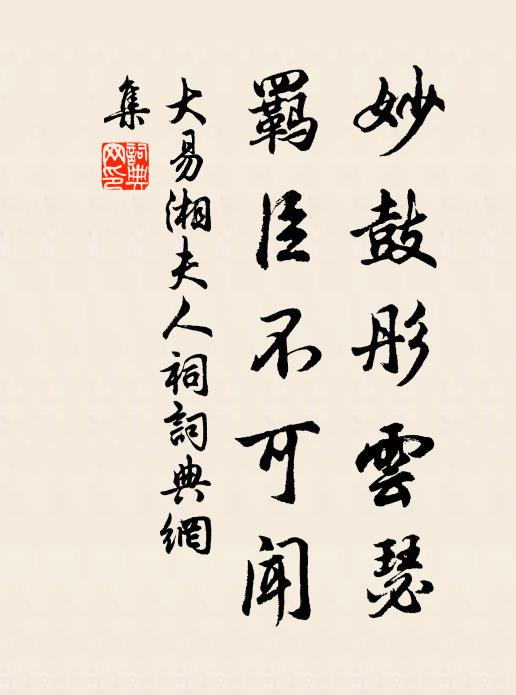 妙鼓彤雲瑟
羈臣不可聞
大易湘夫人祠詞典網
集
詞典網印